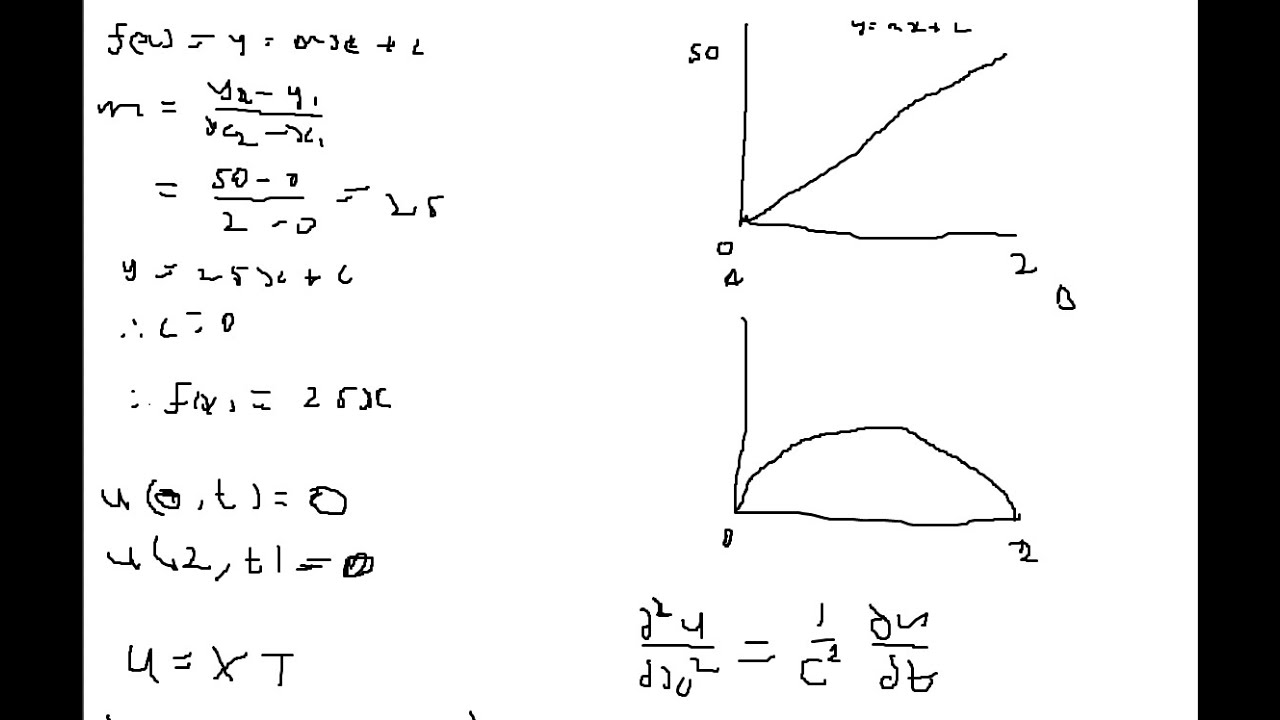 f(x) = y = mx + c
m = \frac{y_2 - y_1}{x_2 - x_1}
= \frac{50 - 0}{2 - 0} = 25
y = 25x + c
∴ c = 0
∴ f(x) = 25x
u(0, t) = 0
u(2, t) = 0
u = X T
y = mx + c
50
0
2
A
B
0
2
\frac{∂^2 u}{∂x^2} = \frac{1}{c^2} \frac{∂u}{∂t}